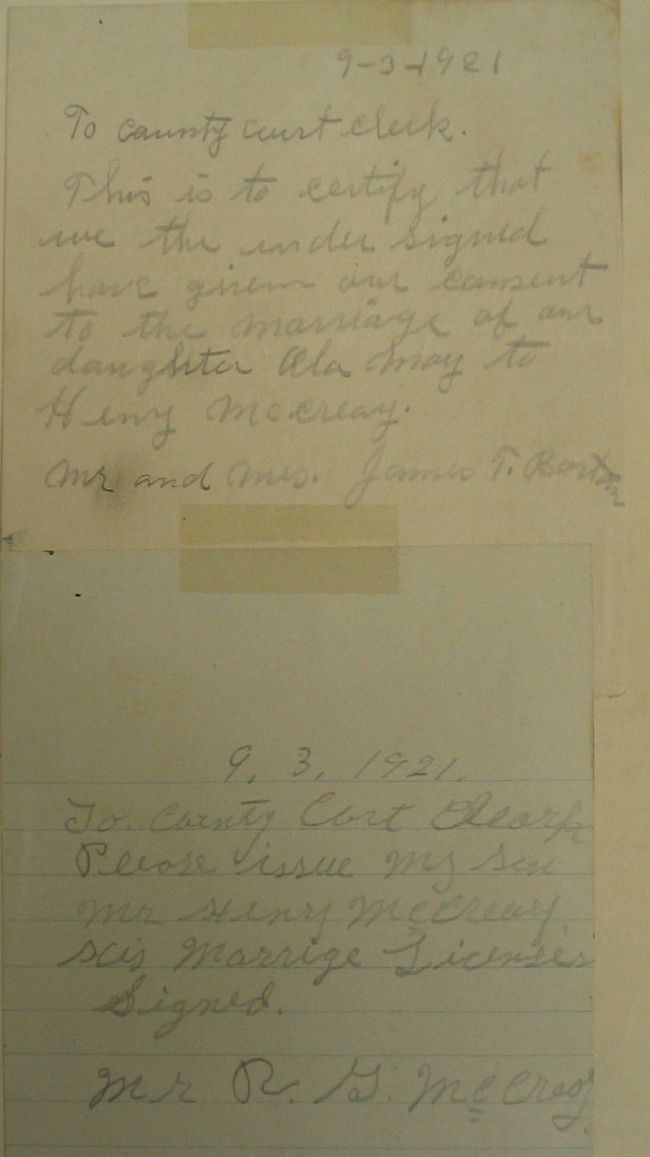 9-3-1921
To county curt clerk.
This is to certify that
we the under signed
have given our consent
to the marriage of our
daughter Ola May to
Heny Mccreay.
Mr and Mrs. James T.
9, 3, 1921.
To. County Cort Cleark
Please issue my son
Mr Henry McCreay
His Marrige Licenses
Signed.
Mr R. G. McCreay